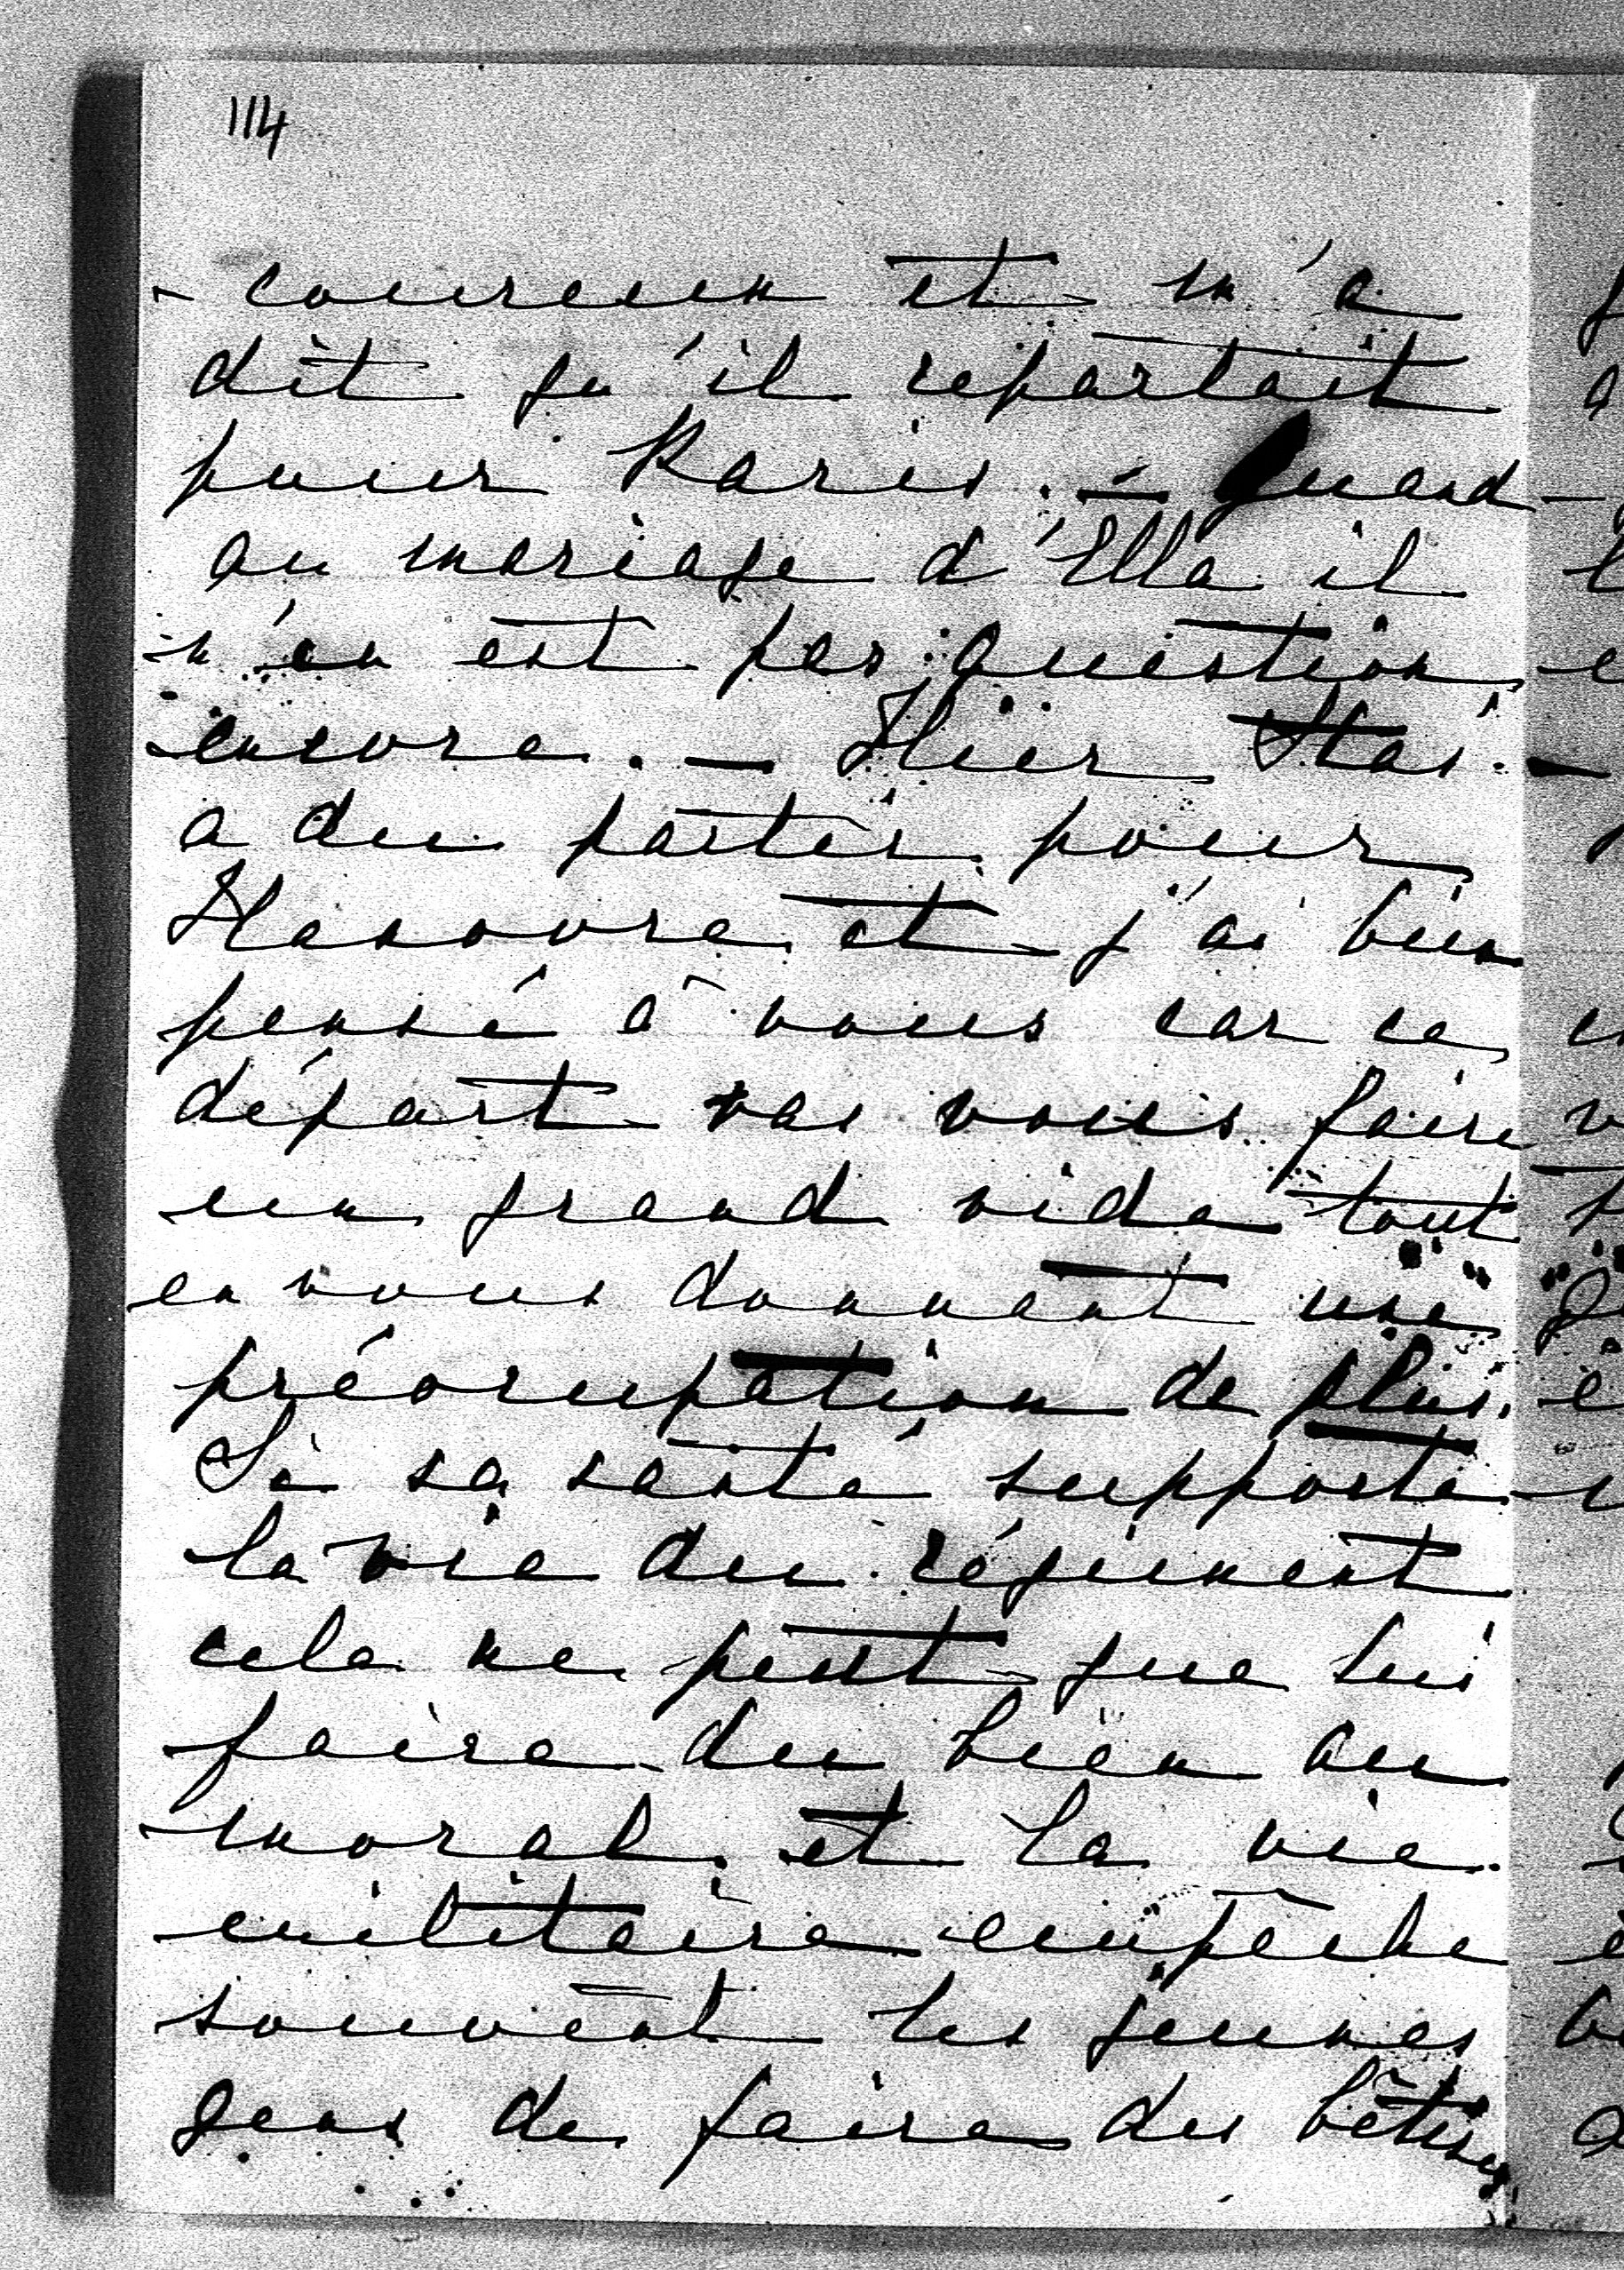 114
coureur et m'a
dit qu'il repartait
pour Paris. – Quand
au mariage d'Ella il
n'en est pas question
encore. – Hier Stas.
a du partir pour
Hanovre et j'ai bien
pensé à vous car ce
départ vas vous faire
un grand vide tout
en vous donnant une
préocupation de plus.
Si sa santé supporte
la vie du régiment
cela ne peut que lui
faire du bien au
moral et la vie
militaire empêche
souvent les jeunes
gens de faire des bêtises